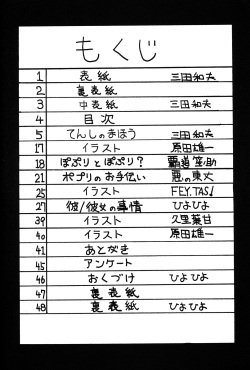 もくじ
1 表紙 三田和夫
2 裏表紙
3 中表紙 三田和夫
4 目次
5 てんしのきほう 三田和夫
17 イラスト 原田雄一
18 ぽぷりとぽぷり? 覇道笑助
21 ポプリのお手伝い 悪の東火
25 イラスト FEY.TAS!
27 彼/彼女の事情 ひよひよ
39 イラスト 久里葉甘
40 イラスト 原田雄一
41 あとがき
45 アンケート
46 おくづけ ひよひよ
47 裏表紙
48 裏表紙 ひよひよ